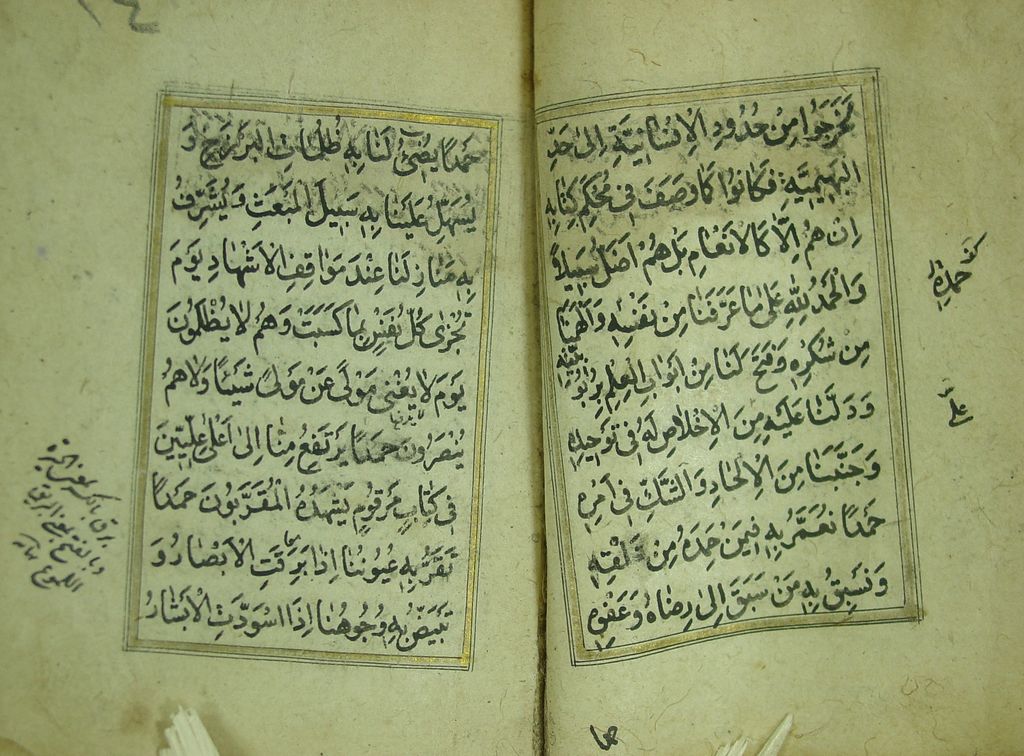 لَخَرَجُوا مِنْ حُدُودِ الْاِنْسَانِيَّةِ اِلىٰ حَدِّ
الْبَهِيمِيَّةِ فَكَانُوا كَمَا وَصَفَ فِى مُحْكَمِ كِتَابِهِ
اِنْ هُمْ اِلَّا كَالْاَنْعَامِ بَلْ هُمْ اَضَلُّ سَبِيلاً
وَالْحَمْدُ لِلّٰهِ عَلىٰ مَا عَرَّفَنَا مِنْ نَفْسِهِ وَاَلْهَمَنَا
مِنْ شُكْرِهِ وَفَتَحَ لَنَا مِنْ اَبْوَابِ الْعِلْمِ بِرُبُوبِيَّتِهِ
وَدَلَّنَا عَلَيْهِ مِنَ الْاِخْلَاصِ لَهُ فِى تَوْحِيدِهِ
وَجَنَّبَنَا مِنَ الْاِلْحَادِ وَالشَّكِّ فِى اَمْرِهِ
حَمْداً نُعَمَّرُ بِهِ فِيمَنْ حَمِدَهُ مِنْ خَلْقِهِ
وَنَسْبِقُ بِهِ مَنْ سَبَقَ اِلىٰ رِضَاهُ وَعَفْوِهِ
حَمْداً يُضِىءُ لَنَا بِهِ ظُلُمَاتِ الْبَرْزَخِ وَ
يُسَهِّلُ عَلَيْنَا بِهِ سَبِيلَ الْمَبْعَثِ وَيُشَرِّفُ
بِهِ مَنَازِلَنَا عِنْدَ مَوَاقِفِ الْاَشْهَادِ يَوْمَ
تُجْزٰى كُلُّ نَفْسٍ بِمَا كَسَبَتْ وَهُمْ لَا يُظْلَمُونَ
يَوْمَ لَا يُغْنِى مَوْلًى عَنْ مَوْلًى شَيْئاً وَلَا هُمْ
يُنْصَرُونَ حَمْداً يَرْتَفِعُ مِنَّا اِلىٰ اَعْلىٰ عِلِّيِّينَ
فِى كِتَابٍ مَرْقُومٍ يَشْهَدُهُ الْمُقَرَّبُونَ حَمْداً
تَقَرُّ بِهِ عُيُونُنَا اِذَا بَرِقَتِ الْاَبْصَارُ وَ
تَبْيَضُّ بِهِ وُجُوهُنَا اِذَا اسْوَدَّتِ الْاَبْشَارُ